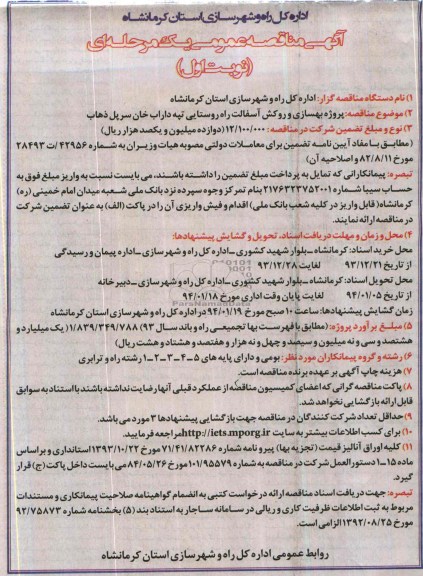 اداره کل راه و شهرسازی استان کرمانشاه
آگهی مناقصه عمومی یک مرحله ای
(نوبت اول)
۱) نام دستگاه مناقصه گزار: اداره کل راه و شهرسازی استان کرمانشاه
۲) موضوع مناقصه: پروژه بهسازی و روکش آسفالت راه روستایی تپه داراب خان سرپل ذهاب
۳) نوع و مبلغ تضمین شرکت در مناقصه: ۱۲/۱۰۰/۰۰۰ (دوازده میلیون و یکصد هزار ریال)
(مطابق با مفاد آیین نامه تضمین برای معاملات دولتی مصوبه هیات وزیران به شماره ۴۲۹۵۶/ت ۲۸۴۹۳
مورخ ۸۲/۸/۱۱ و اصلاحیه آن)
تبصره: پیمانکارانی که تمایل به پرداخت مبلغ تضمین را داشته باشند، می بایست نسبت به واریز مبلغ فوق به
حساب سیبا شماره ۲۱۷۶۲۳۲۷۵۲۰۰۱ بنام تمرکز وجوه سپرده نزد بانک ملی شعبه میدان امام خمینی (ره)
کرمانشاه (قابل واریز در کلیه شعب بانک ملی) اقدام و فیش واریزی آن را در پاکت (الف) به عنوان تضمین شرکت
در مناقصه ارائه نمایند.
۴) محل و زمان و مهلت دریافت اسناد، تحویل و گشایش پیشنهادها:
محل خرید اسناد: کرمانشاه_بلوار شهید کشوری_اداره کل راه و شهرسازی_اداره پیمان و رسیدگی
از تاریخ ۹۳/۱۲/۲۱ لغایت ۹۳/۱۲/۲۸
محل تحویل اسناد: کرمانشاه_بلوار شهید کشوری_اداره کل راه و شهرسازی_دبیرخانه
از تاریخ ۹۴/۰۱/۰۵ لغایت پایان وقت اداری مورخ ۹۴/۰۱/۱۸
زمان گشایش پیشنهادها: ساعت ۱۰ صبح مورخ ۹۴/۰۱/۱۹ در اداره کل راه و شهرسازی استان کرمانشاه
۵) مبلغ برآورد پروژه: (مطابق با فهرست بها تجمیعی راه و باند سال ۹۳) ۱/۸۳۹/۳۴۹/۷۸۸ (یک میلیارد و
هشتصد و سی و نه میلیون و سیصد و چهل و نه هزار و هفتصد و هشتاد و هشت ریال)
۶) رشته و گروه پیمانکاران مورد نظر: بومی و دارای پایه های ۵_۴_۳_۲_۱ رشته راه و ترابری
۷) هزینه چاپ آگهی بر عهده برنده مناقصه است.
۸) پاکت مناقصه گرانی که اعضای کمیسیون مناقصه از عملکرد قبلی آنها رضایت نداشته باشند با استناد به سوابق
قابل ارائه بازگشایی نخواهد شد.
۹) حداقل تعداد شرکت کنندگان در مناقصه جهت بازگشایی پیشنهادها ۳ مورد می باشد.
۱۰) برای کسب اطلاعات بیشتر به سایت http://iets.mporg.ir مراجعه فرمایید.
۱۱) کلیه اوراق آنالیز قیمت (تجزیه بها) پیرو نامه شماره ۷۱/۴۱/۸۲۲۸۶ مورخ ۱۳۹۳/۱۰/۲۲ استانداری و بر اساس
ماده ۱۵_۱ دستورالعمل شرکت در مناقصه به شماره ۱۰۱/۹۵۵۷۹ مورخ ۸۴/۰۵/۲۶ می بایست داخل پاکت (ج) قرار
گیرد.
تبصره: جهت دریافت اسناد مناقصه ارائه درخواست کتبی به انضمام گواهینامه صلاحیت پیمانکاری و مستندات
مربوط به ثبت اطلاعات ظرفیت کاری و ریالی در سامانه ساجار به استناد بند (۵) بخشنامه شماره ۹۲/۷۵۸۷۳
مورخ ۱۳۹۲/۰۸/۲۵ الزامی است.
روابط عمومی اداره کل راه و شهرسازی استان کرمانشاه